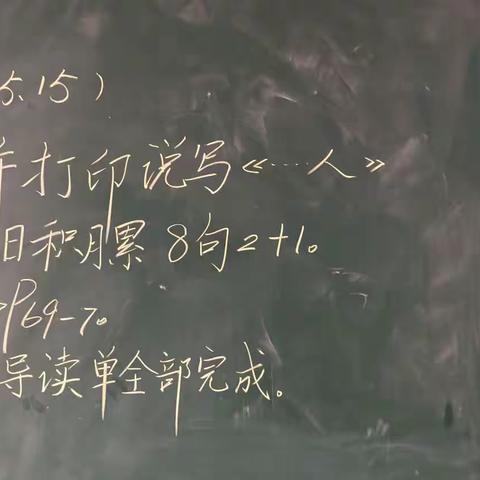 5.15）
并打印说写《…人》
日积月累 8句2+1。
P69-7。
导读单全部完成。